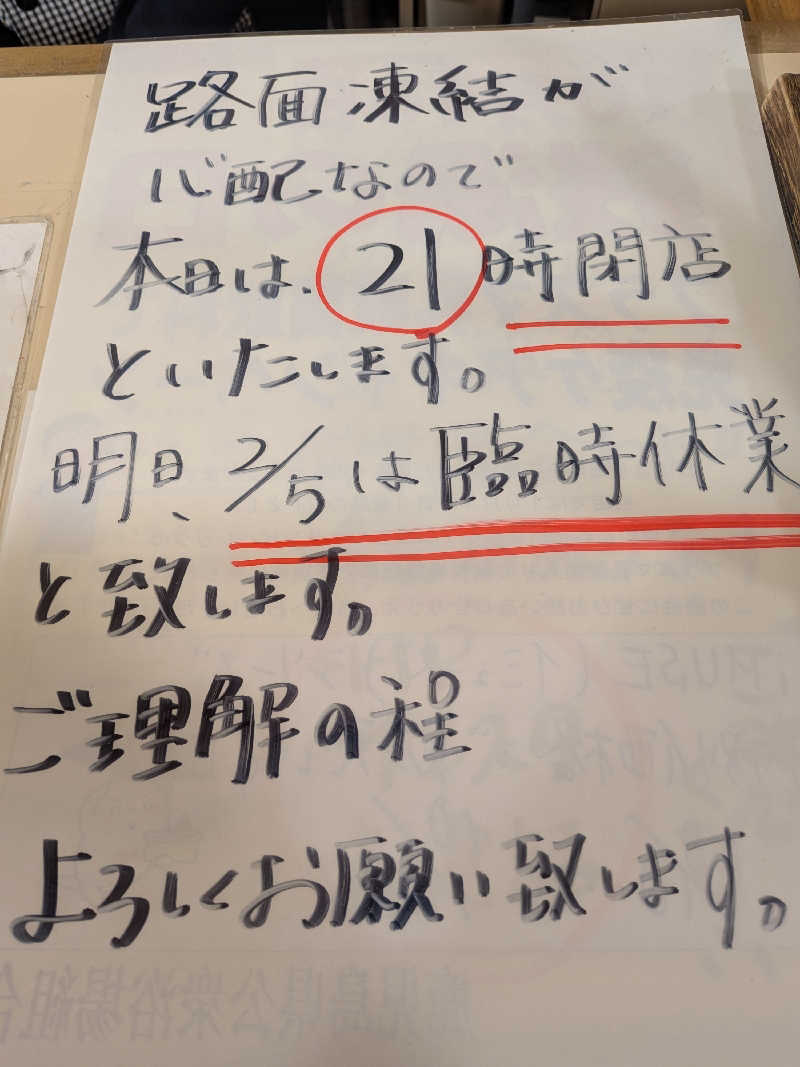 路面凍結が
心配なので
本日は、21時閉店
といたします。
明日、2/5は臨時休業
と致します。
ご理解の程
よろしくお願い致します。
鹿児島県公衆浴場組合